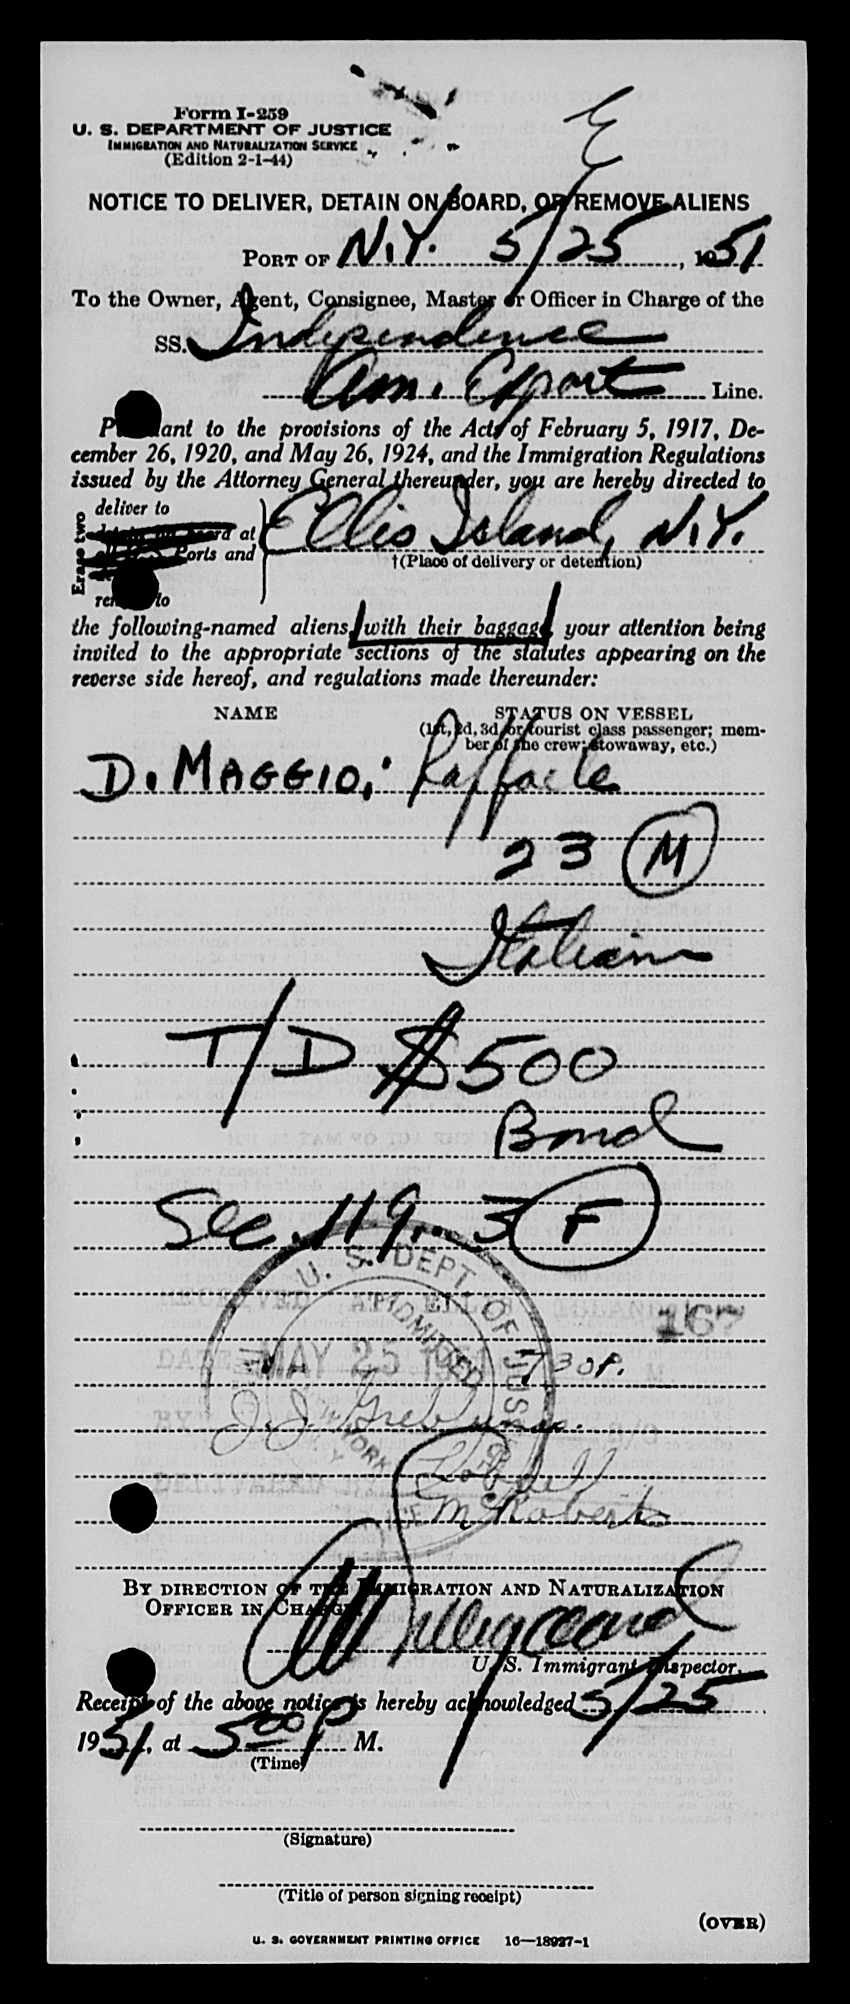 Form I-259
U. S. DEPARTMENT OF JUSTICE
IMMIGRATION AND NATURALIZATION SERVICE
(Edition 2-1-44)
NOTICE TO DELIVER, DETAIN ON BOARD, OR REMOVE ALIENS
PORT OF N.Y. 5/25, 1951
To the Owner, Agent, Consignee, Master or Officer in Charge of the
SS. Independence
Am. Export Line.
Pursuant to the provisions of the Acts of February 5, 1917, De-
cember 26, 1920, and May 26, 1924, and the Immigration Regulations
issued by the Attorney General thereunder, you are hereby directed to
Erase two
deliver to
board at
Ports and
remove to
Ellis Island, N.Y.
†(Place of delivery or detention)
the following-named aliens, with their baggage, your attention being
invited to the appropriate sections of the statutes appearing on the
reverse side hereof, and regulations made thereunder:
NAME STATUS ON VESSEL
(1st, 2d, 3d, or tourist class passenger; mem-
ber of the crew; stowaway, etc.)
Di MAGGIO, Raffaele
23 M
Italian
T/D $500
Bond
Sec. 119..3 F
U. S. DEPT. OF JUSTICE
ADMITTED
167
MAY 25 1951 730P.
J. J.
McRoberts
BY DIRECTION OF THE IMMIGRATION AND NATURALIZATION
OFFICER IN CHARGE
U. S. Immigrant Inspector.
Receipt of the above notice is hereby acknowledged 5/25
1951, at 5:00 P M.
(Time)
(Signature)
(Title of person signing receipt)
(OVER)
U. S. GOVERNMENT PRINTING OFFICE 16—18927-1